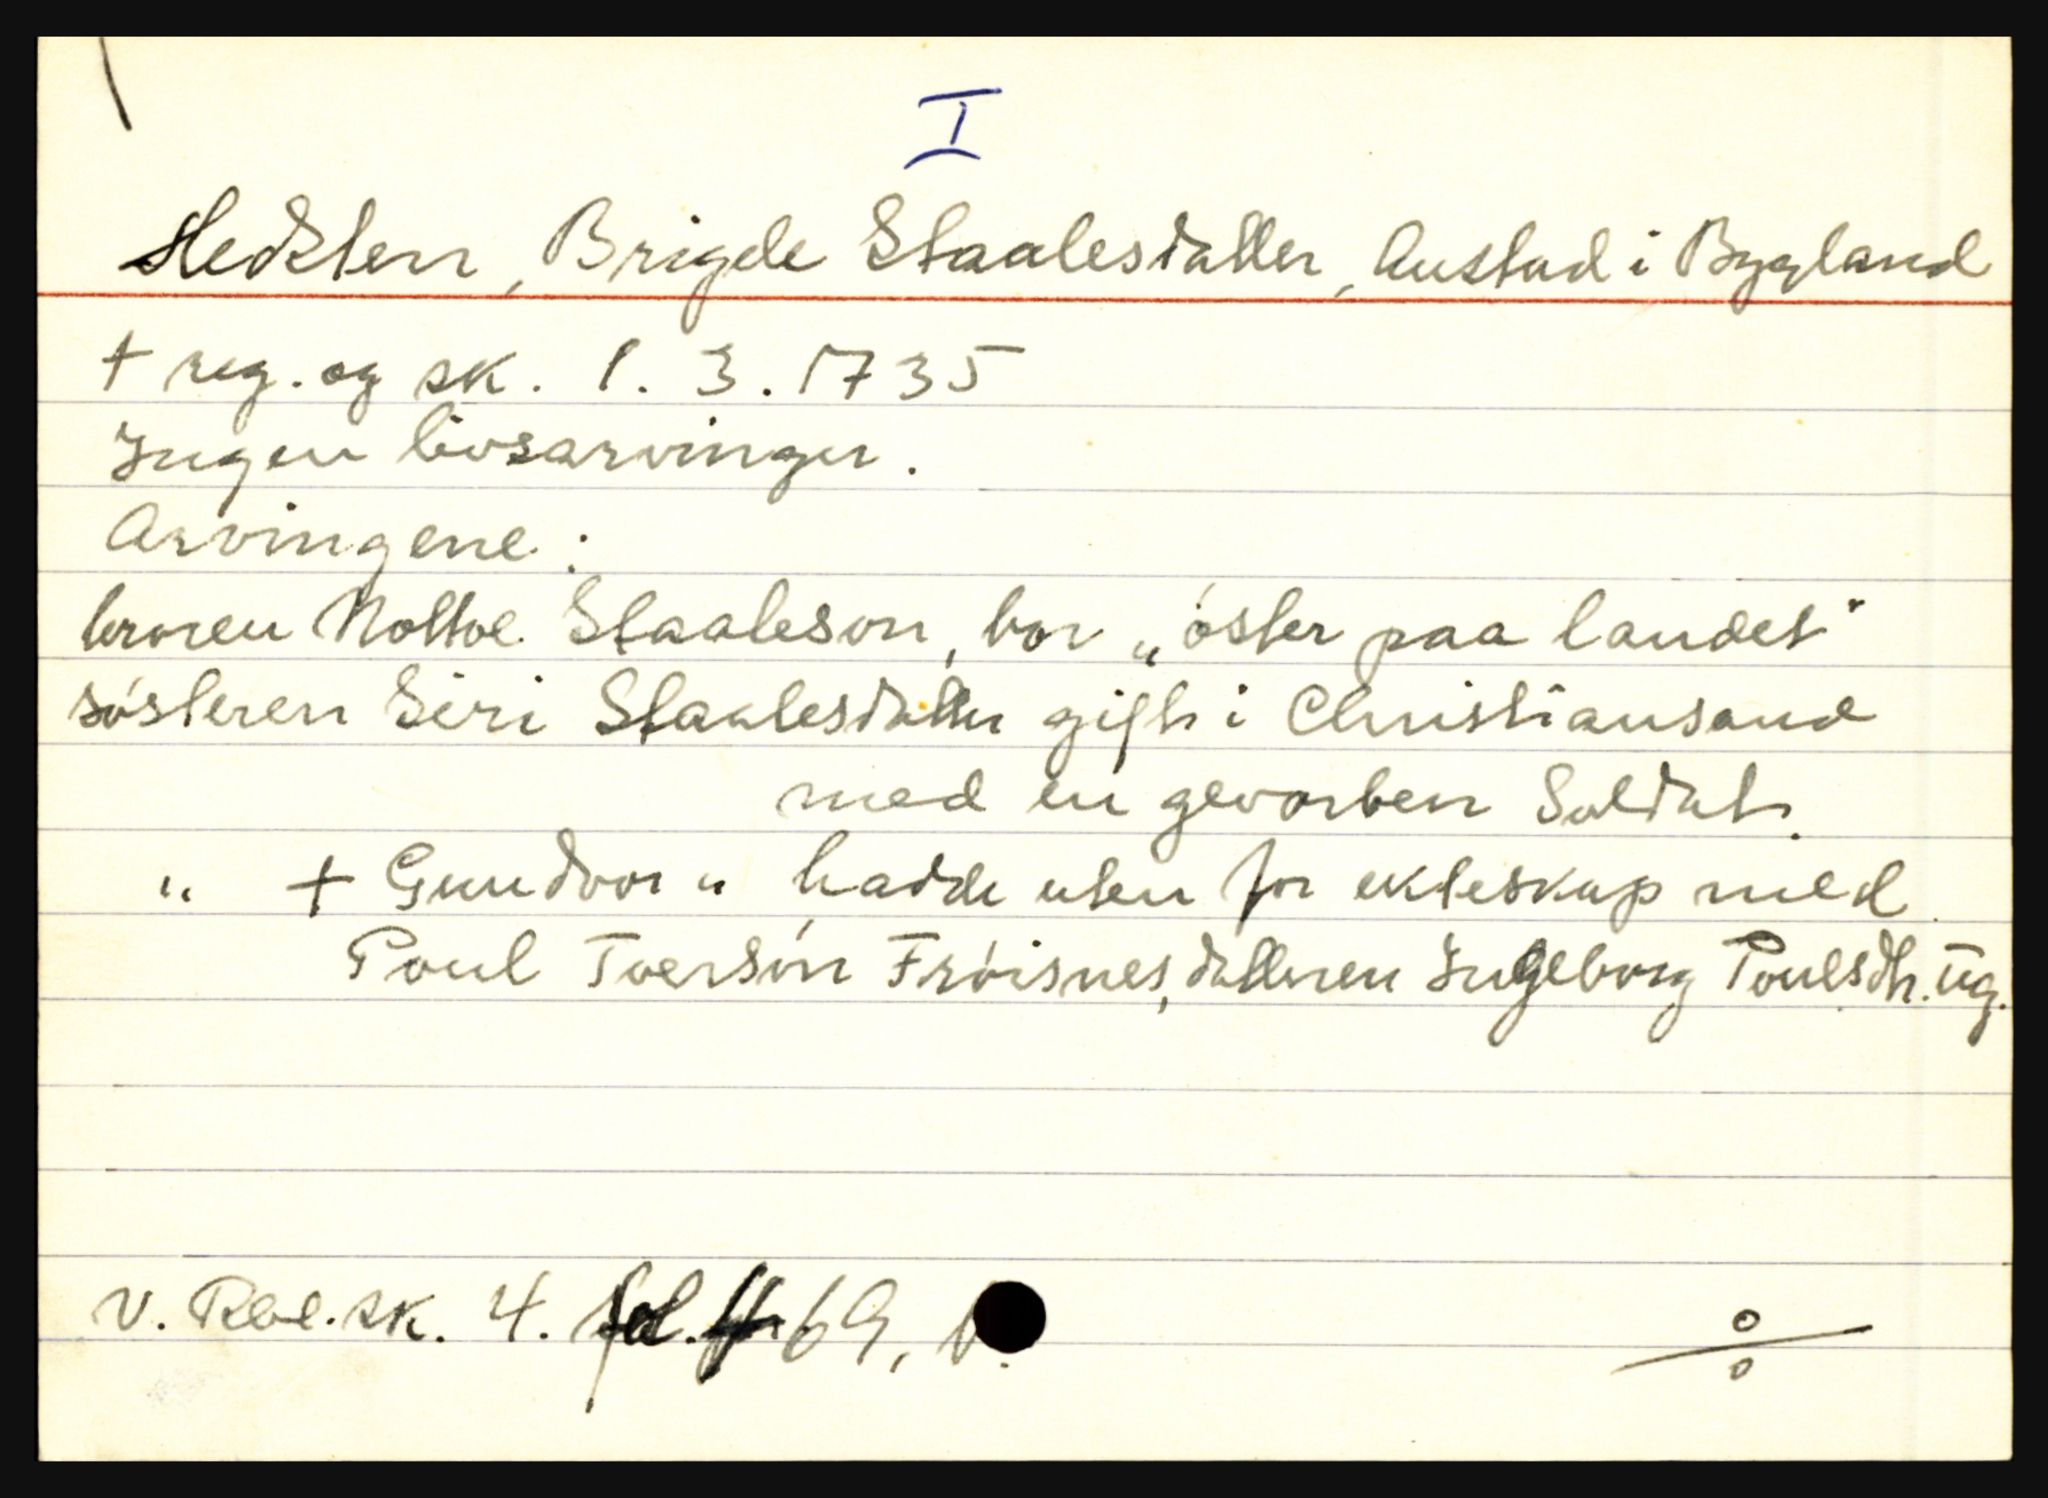 I
Hedsten, Brigde Staalesdatter, Austad i Bygland
+ reg. og sk. 1. 3. 1735
Ingen livsarvinger.
Arvingene:
broren Nottov Staaleson, bor „öster paa landet"
sósteren Siri Staalesdatter gift i Christiansand
med en gevorben Soldat.
" + Gundvor " hadde uten for ekteskap med
Poul Tversón Fróisnes, datteren Ingeborg Poulsdtr. Ug.
V. Rbl. sk. 4. fol. 69,